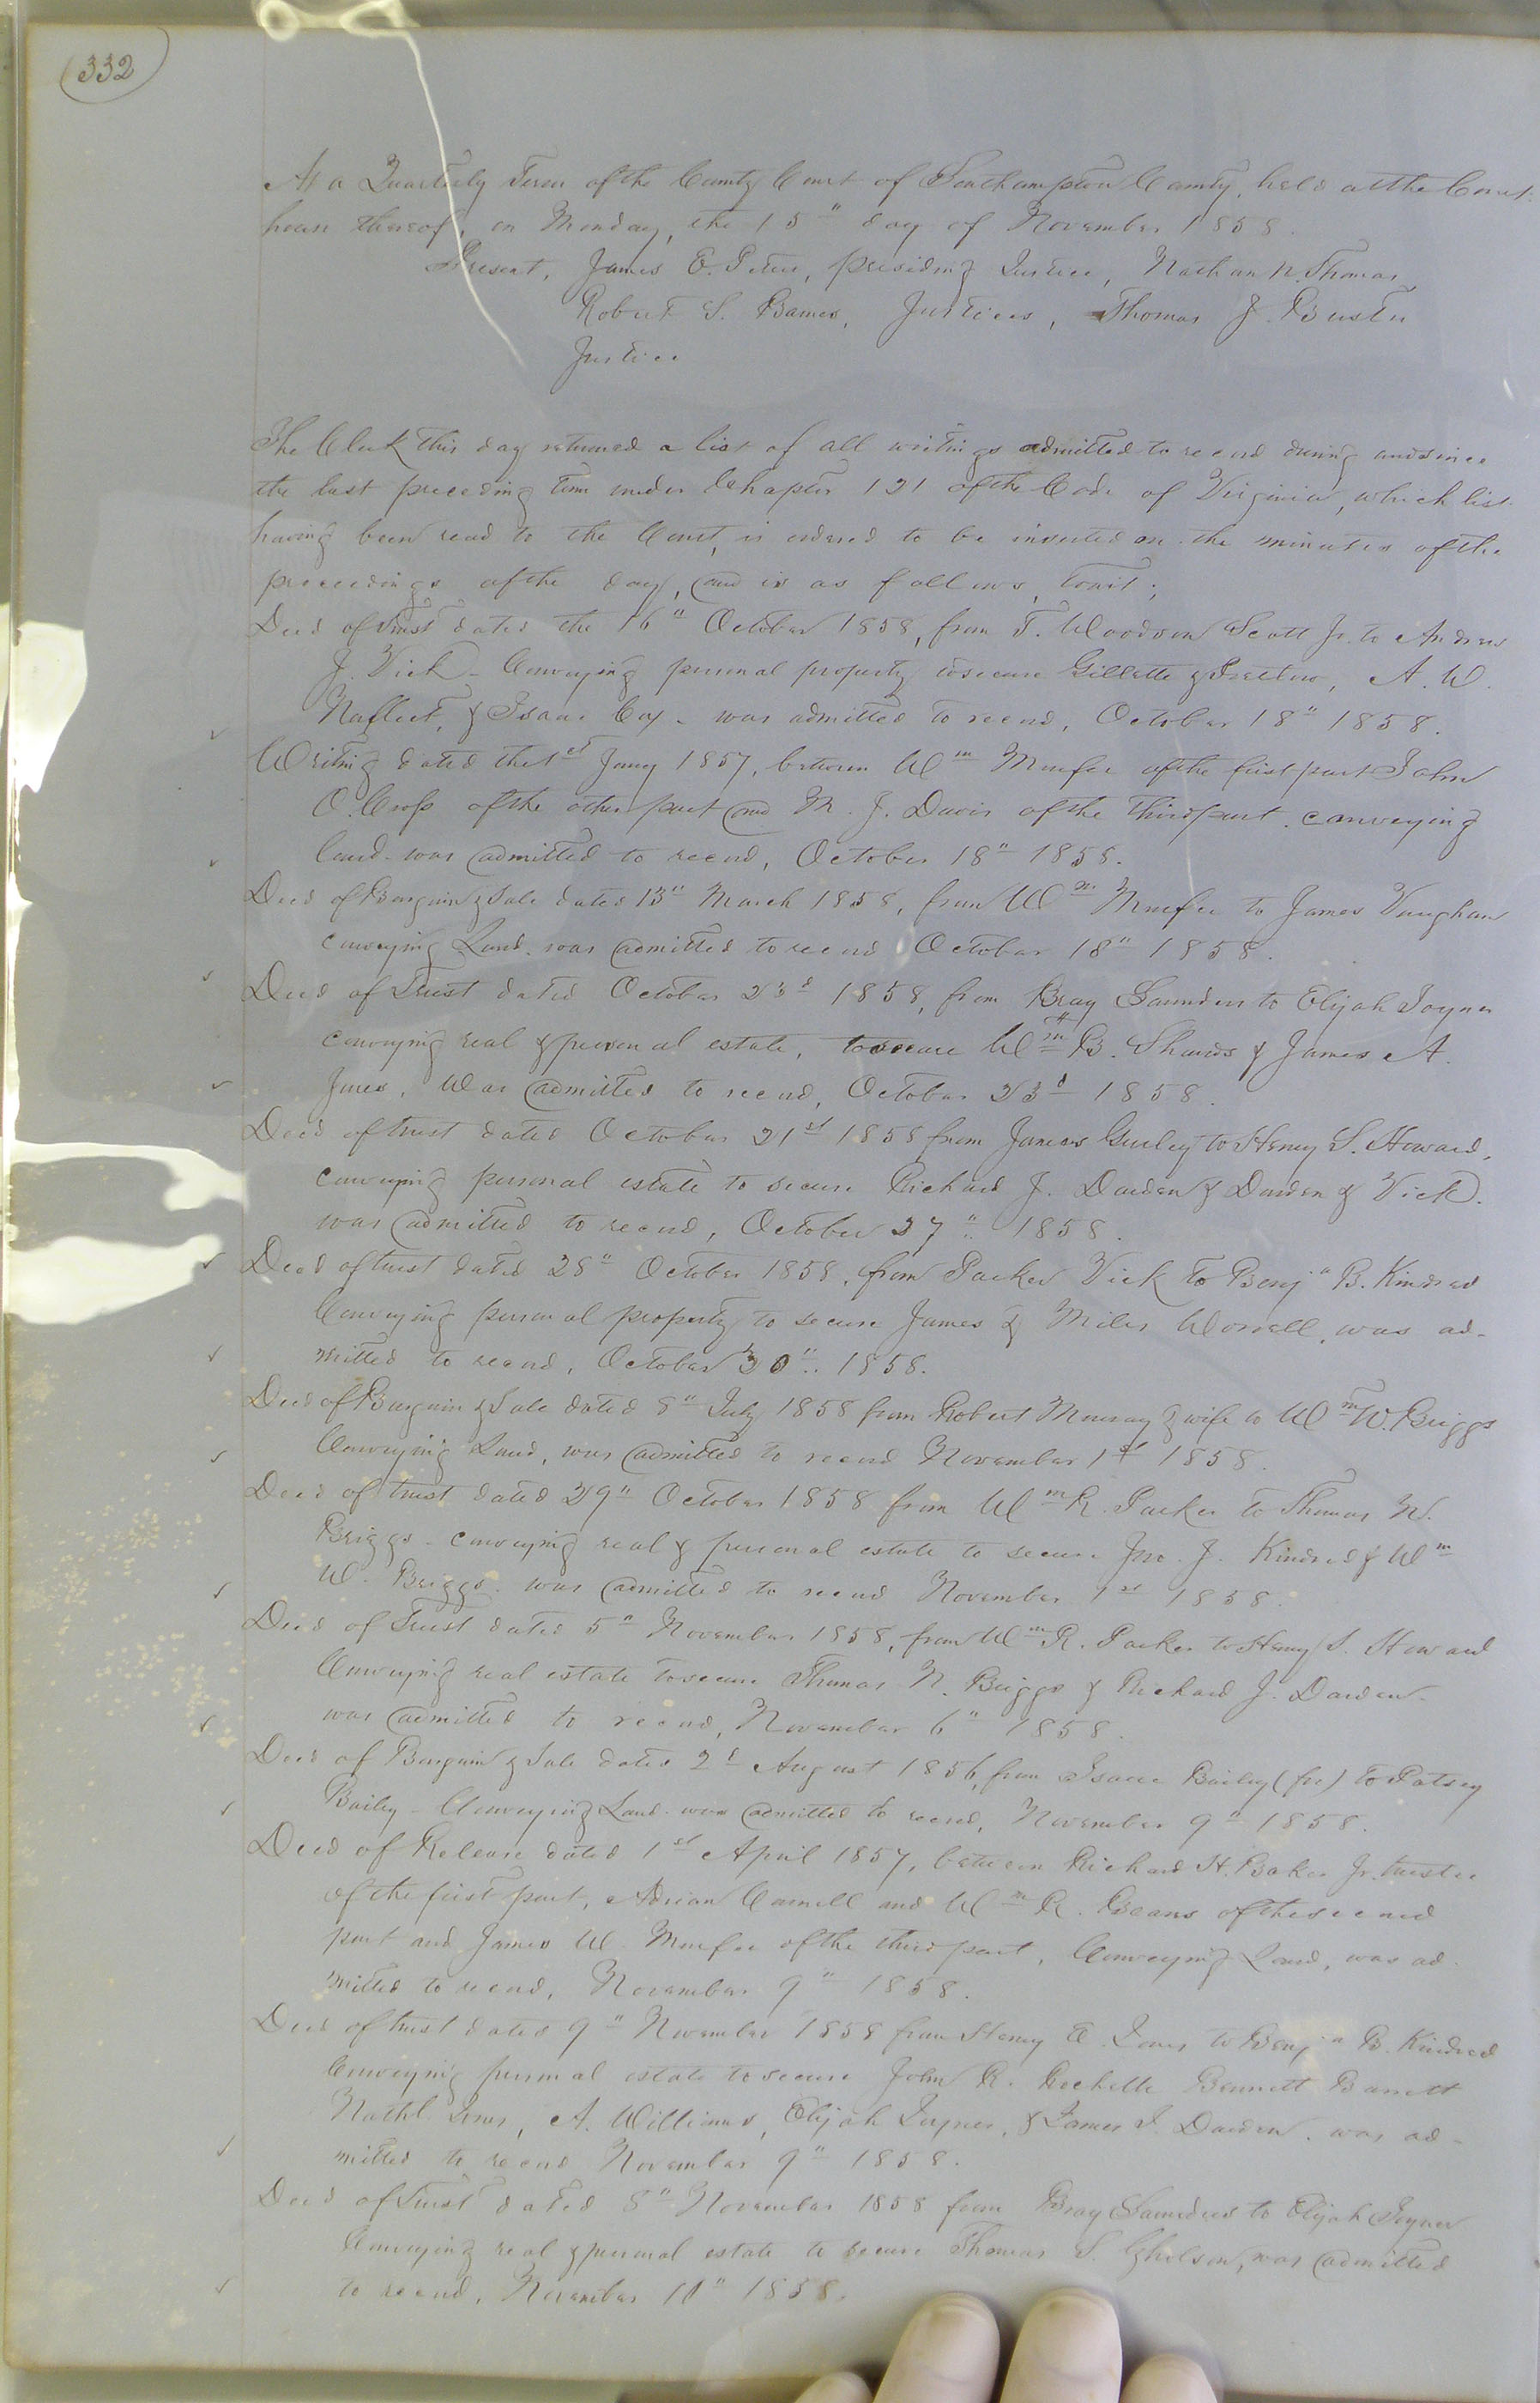 332
At a Quarterly Term of the County Court of Southampton County, held at the Court
house thereof, on Monday, the 15" day of November 1858.
Present, James E. Peters, presiding Justice, Nathan N. Thomas
Robert S. Barnes, Justices, Thomas J.
Justice
The Clerk this day returned a list of all writings admitted to record during and since
the last preceding term under Chapter 121 of the Code of Virginia, which list
having been read to the Court, is ordered to be inserted on the minutes of the
proceedings of the day, and is as follows, towit;
Deed of Trust dated the 16" October 1858, from T. Woodson Scott Jr. to Andrew
J. Vick - Conveying personal property to secure Gillette & Pretlow, A. W.
Norfleet, & Isaac Cox - was admitted to record, October 18" 1858.
Writing dated the 1st Jany 1857, between Wm Murfee of the first part John
O. Cross of the other part and M. J. Davis of the third part, conveying
land - was admitted to record, October 18" 1858.
Deed of Bargain & Sale dated 13" March 1858, from Wm Murfee to James Vaughan
conveying Land - was admitted to record October 18" 1858.
Deed of Trust dated October 23d 1858, from Bray Saunders to Elijah Joyner
conveying real & personal estate, to secure Wm B. Shands & James A.
Jones, Was admitted to record, October 23d 1858.
Deed of trust dated October 21st 1858 from James Gurley to Henry S. Howard,
conveying personal estate to secure Richard J. Darden & Darden & Vick.
was admitted to record, October 27" 1858.
Deed of trust dated 28" October 1858, from Parker Vick to Benja B. Kindred
Conveying personal property to secure James & Miles Worrell, was ad-
mitted to record, October 30" 1858.
Deed of Bargain & Sale dated 8" July 1858 from Robert Murray & wife to Wm W. Briggs
Conveying Land, was admitted to record November 1st 1858.
Deed of trust dated 29" October 1858 from Wm R. Parker to Thomas N.
Briggs - conveying real & personal estate to secure Jno. J. Kindred & Wm
W. Briggs - was admitted to record November 1st 1858.
Deed of Trust dated 5" November 1858, from Wm R. Parker to Henry S. Howard
Conveying real estate to secure Thomas N. Briggs & Richard J. Darden -
was admitted to record, November 6" 1858.
Deed of Bargain & Sale dated 2d August 1856, from Isaac Bailey (fn) to Patsey
Bailey - Conveying Land - was admitted to record, November 9" 1858.
Deed of Release dated 1st April 1857, between Richard H. Baker Jr. trustee
of the first part, Adrian and Wm R. Beans of the second
part and James W. Murfee of the third part, Conveying Land, was ad-
mitted to record, November 9" 1858.
Deed of trust dated 9" November 1858 from Henry E. Jones to Benja B. Kindred
Conveying personal estate to secure John R. Rochelle Bennett Barrett
Nathl A. Williams, Elijah Joyner, & James J. Darden - was ad-
mitted to record November 9" 1858.
Deed of Trust dated 8" November 1858 from Bray Saunders to Elijah Joyner
Conveying real & personal estate to secure Thomas S. was admitted
to record, November 10" 1858.